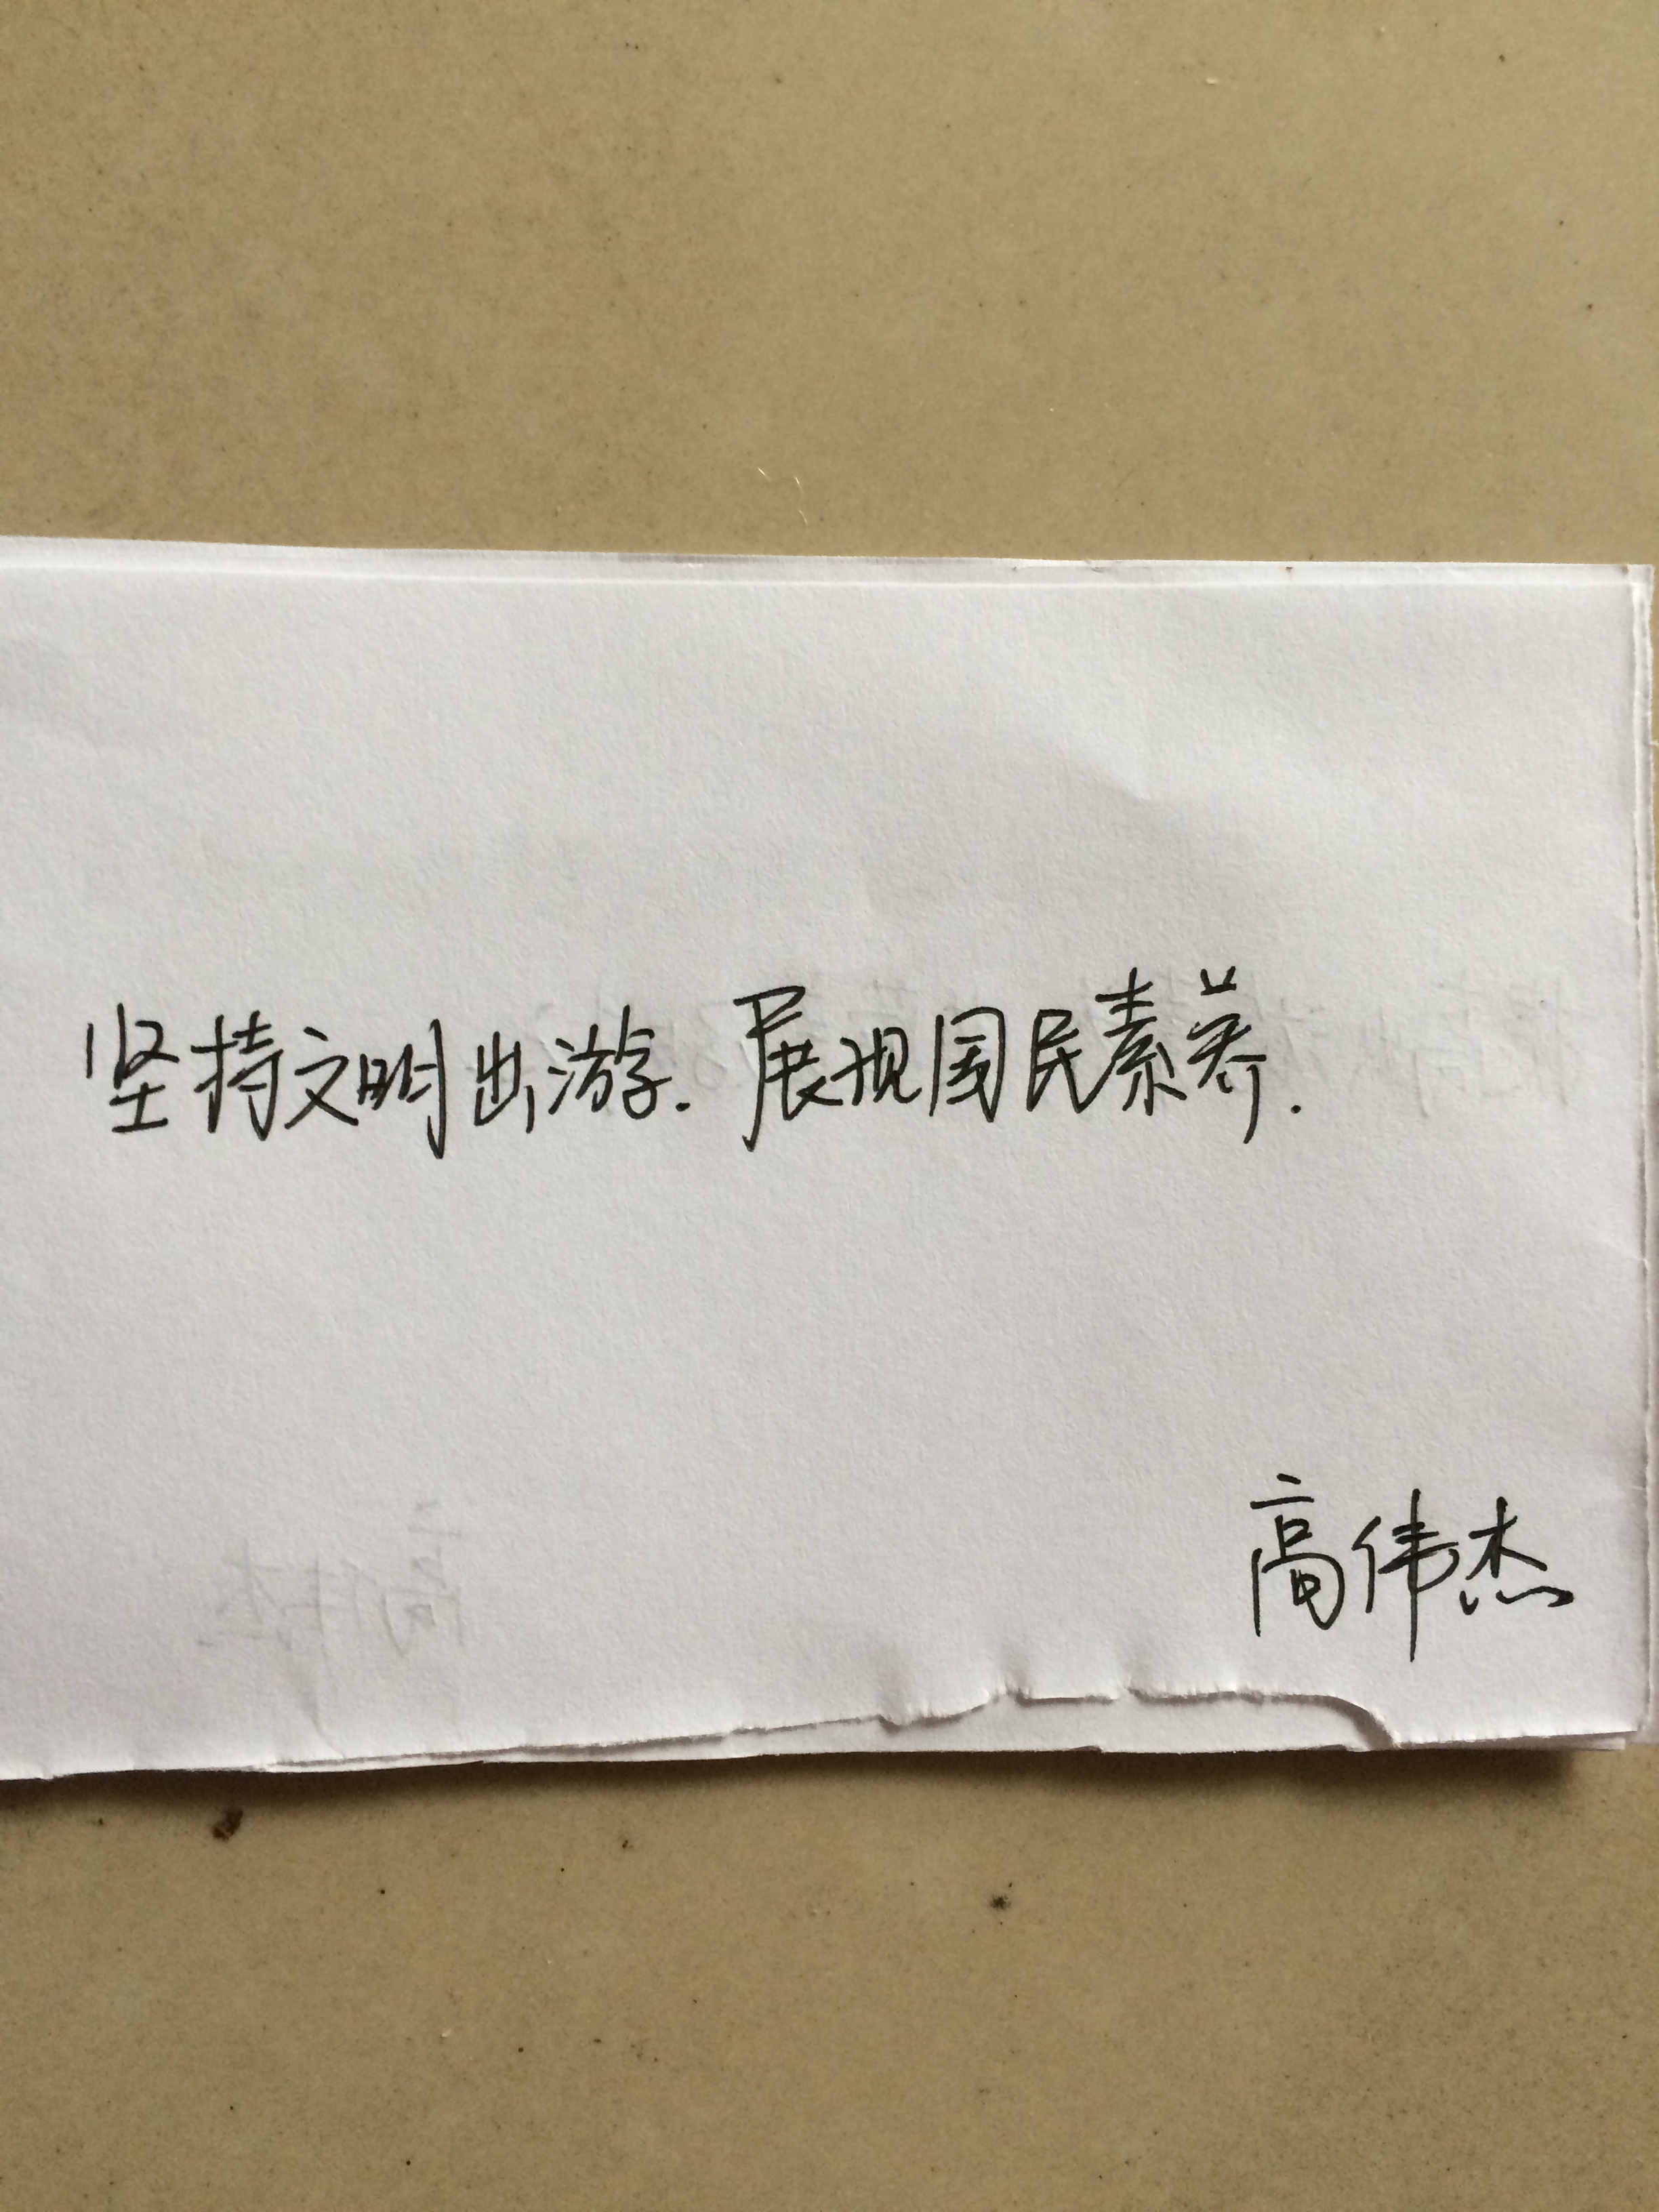 坚持文明出游.展现国民素养.
高伟杰